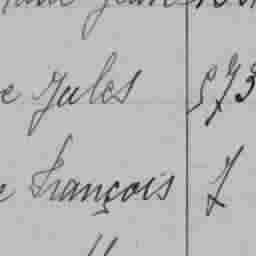 e Jules 573
e François 7